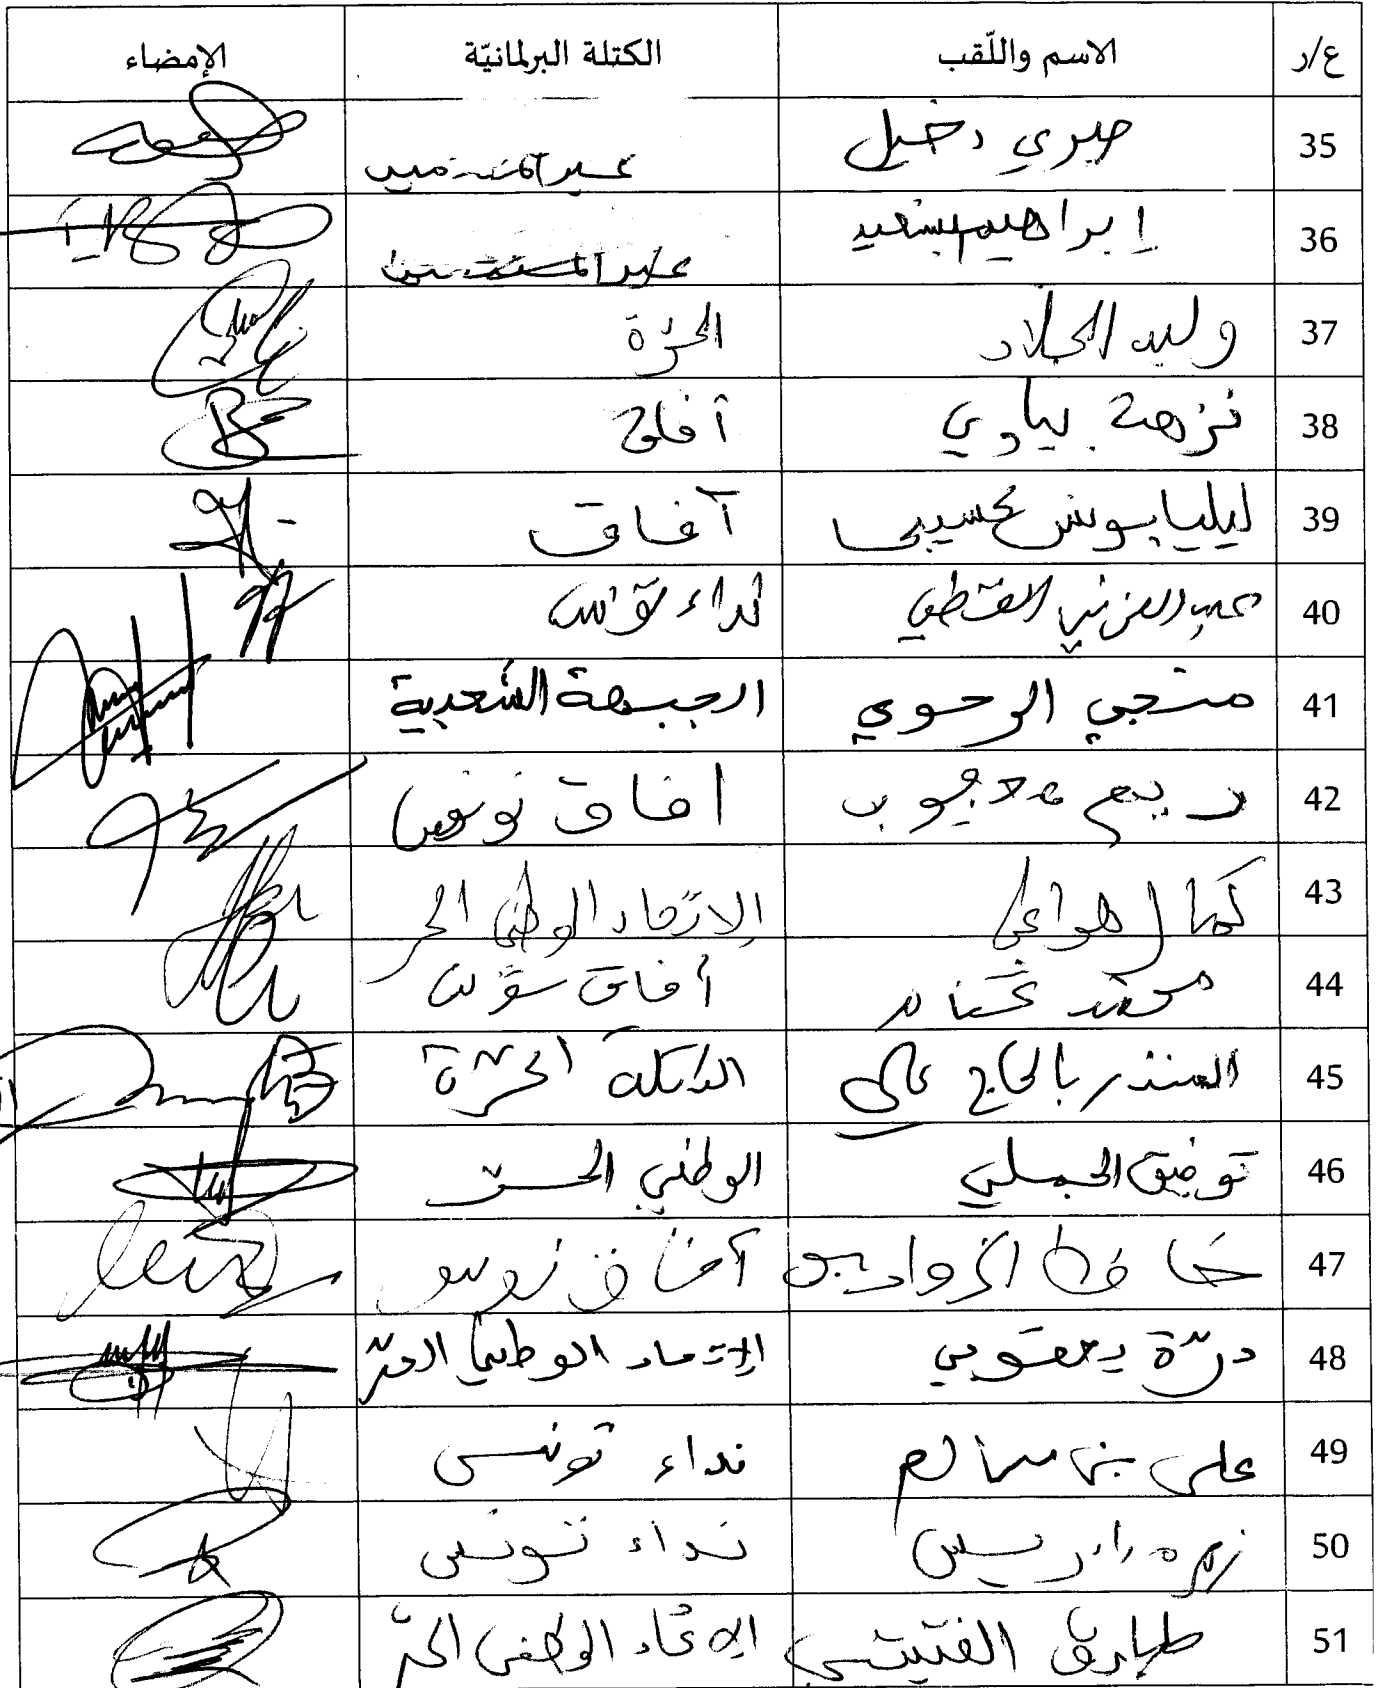 ع/ر الاسم واللّقب الكتلة البرلمانيّة الإمضاء
35 صبري دخيل
36 إبراهيم بنسعيد
37 وليد الجلاد الحرّة
38 نزهة بياوي آفاق
39 ليليا يونس كسيبي آفاق
40 عبد العزيز القطي نداء تونس
41 منجي الرحوي الجبهة الشعبية
42 ريم محجوب افاق تونس
43 كمال هواعي الاتحاد الوطني الحر
44 محمد غنام أفاق تونس
45 المنذر بالحاج علي الكتلة الحرّة
46 توفيق الجملي الوطني الحر
47 حافظ الزواري آفاق تونس
48 درّة يعقوبي الاتحاد الوطني الحرّ
49 علي بن سالم نداء تونس
50 زهرة ادريس نداء تونس
51 طارق الفتيتي الاتحاد الوطني الحرّ